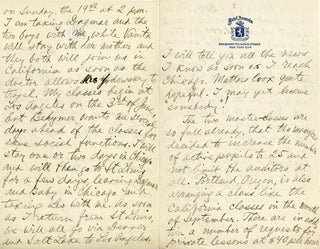 on Sunday, the 19th at 2 p.m.
I am taking Dagmar and the
two boys with me, while Vanita
will stay with her mother and
they both will join us in
California as soon as the
doctor allows to
travel. My classes begin at
Los Angeles on the 3rd of June
but Behymer wants me several
days ahead of the classes for
some social functions. I will
stay one or two days in Chicago
and will then go to St. Louis
for a few days leaving Dagmar
and Baby in Chicago and
taking Leo with me. As soon
as I return from St. Louis,
we will all go via Denver
and Salt Lake to Los Angeles.
Hotel
New York City
I will tell you all the news
I know as soon as I reach
Chicago. Matters look quite
hopeful. I may yet become
"somebody".
The two master-classes are
so full already, that the manager
decided to increase the number
of active pupils to 25 and
not limit the auditors at
all. Portland, Oregon, is also
arranging a class like the
California classes in the month
of September. There are in addi-
tion a number of requests for
private lessons at $40 per hour